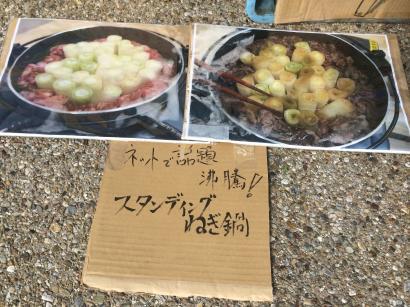 ネットで話題
沸騰!
スタンディング
ねぎ鍋